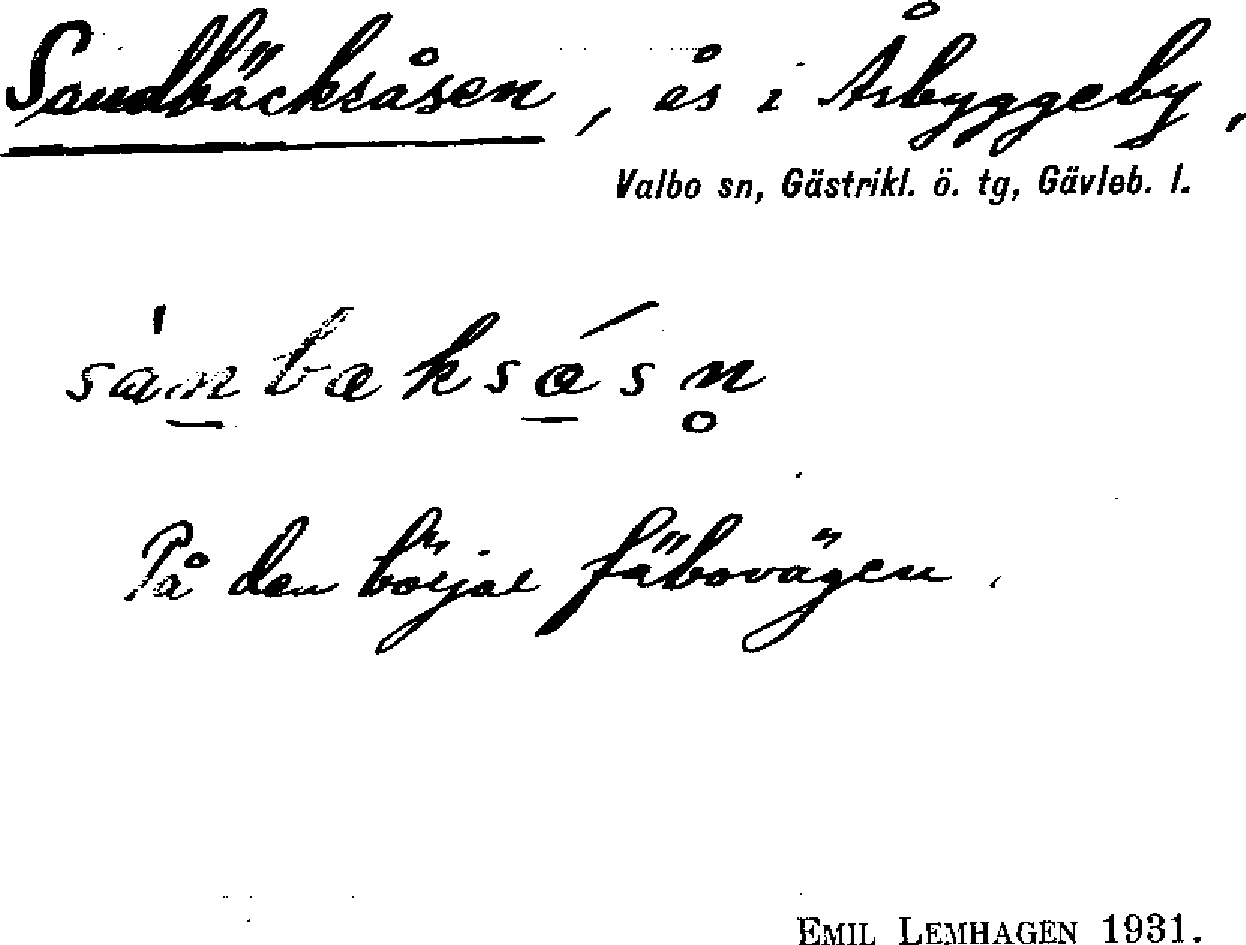 Sandbäcksåsen, ås i Åbyggeby,
Valbo sn, Gästrikl. ö. tg, Gävleb. l.
sànbæksǻsn̥
På den börjar fäbovägen.
EMIL LEMHAGEN 1931.